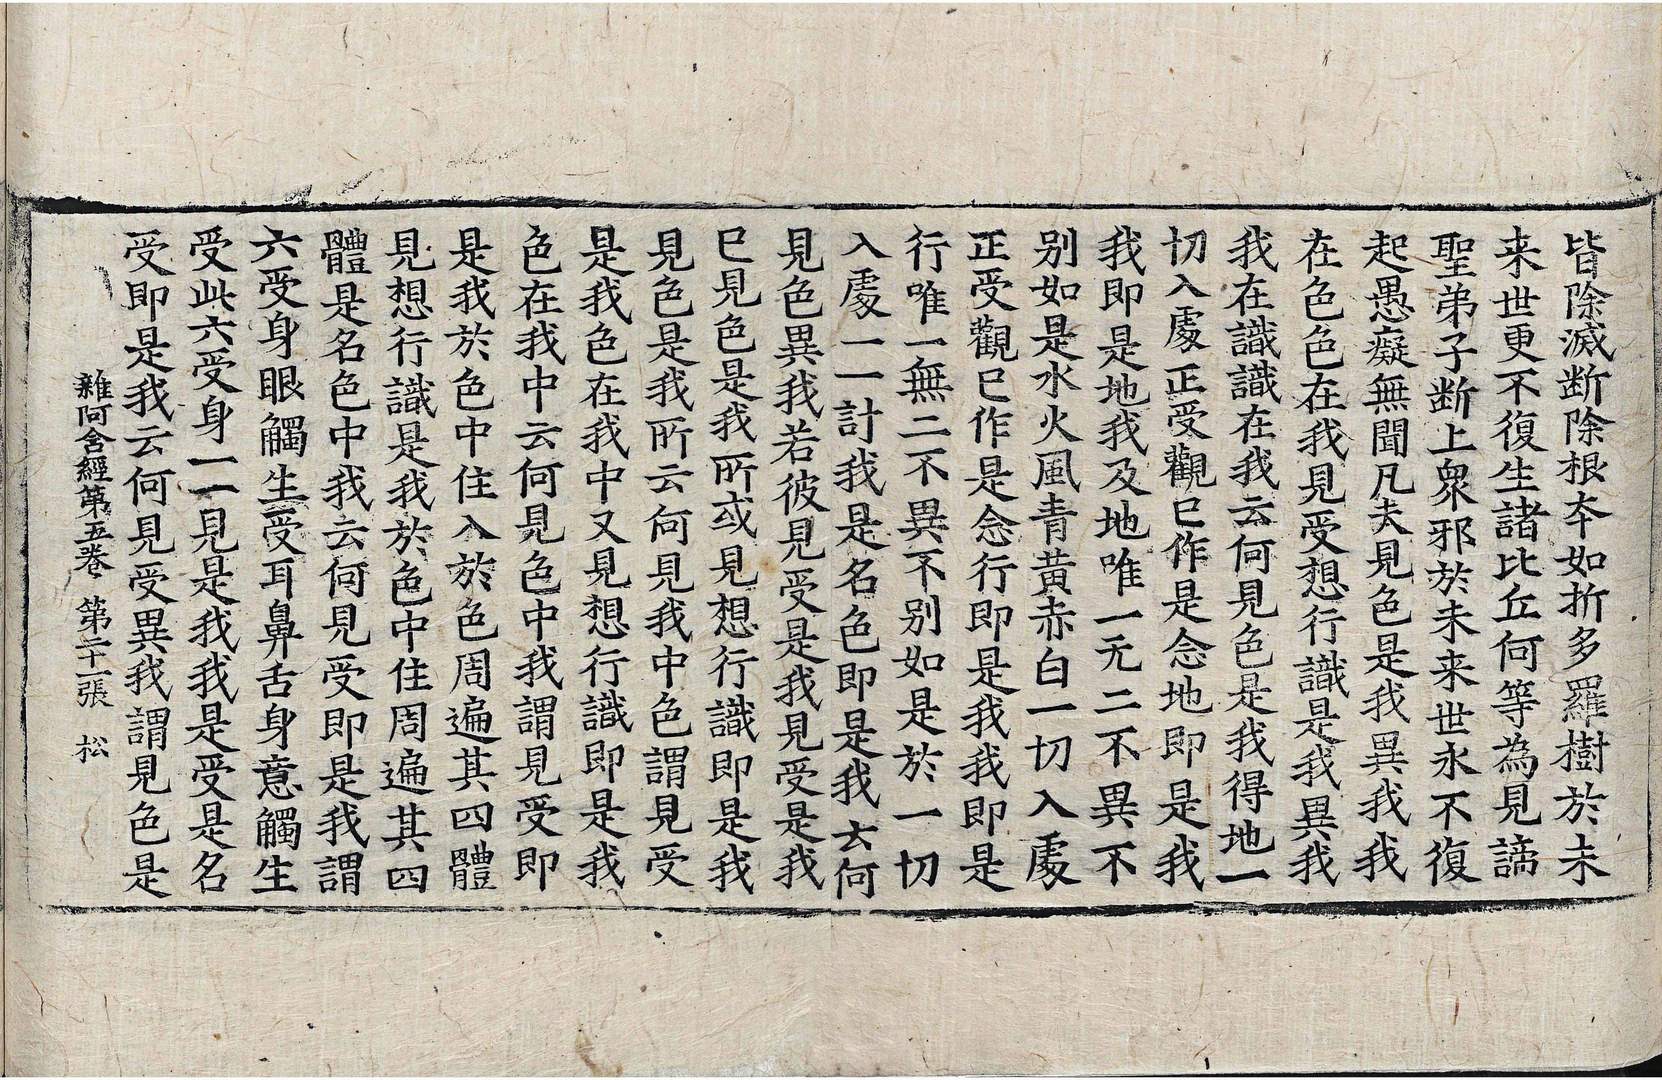 皆除滅断除根夲如折多羅樹於未
来世更不復生諸比丘何等為見諦
聖弟子断上衆邪於未来世永不復
起愚癡無聞凡夫見色是我異我我
在色色在我見受想行識是我異我
我在識識在我云何見色是我得地一
切入處正受觀已作是念地即是我
我即是地我及地唯一无二不異不
别如是水火風青黃赤白一切入處
正受觀已作是念行即是我我即是
行唯一無二不異不别如是於一切
入處一一計我是名色即是我云何
見色異我若彼見受是我見受是我
已見色是我所或見想行識即是我
見色是我所云何見我中色謂見受
是我色在我中又見想行識即是我
色在我中云何見色中我謂見受即
是我於色中住入於色周遍其四體
見想行識是我於色中住周遍其四
體是名色中我云何見受即是我謂
六受身眼觸生受耳鼻舌身意觸生
受此六受身一一見是我我是受是名
受即是我云何見受異我謂見色是
雜阿含經第五卷 第二十一張 松